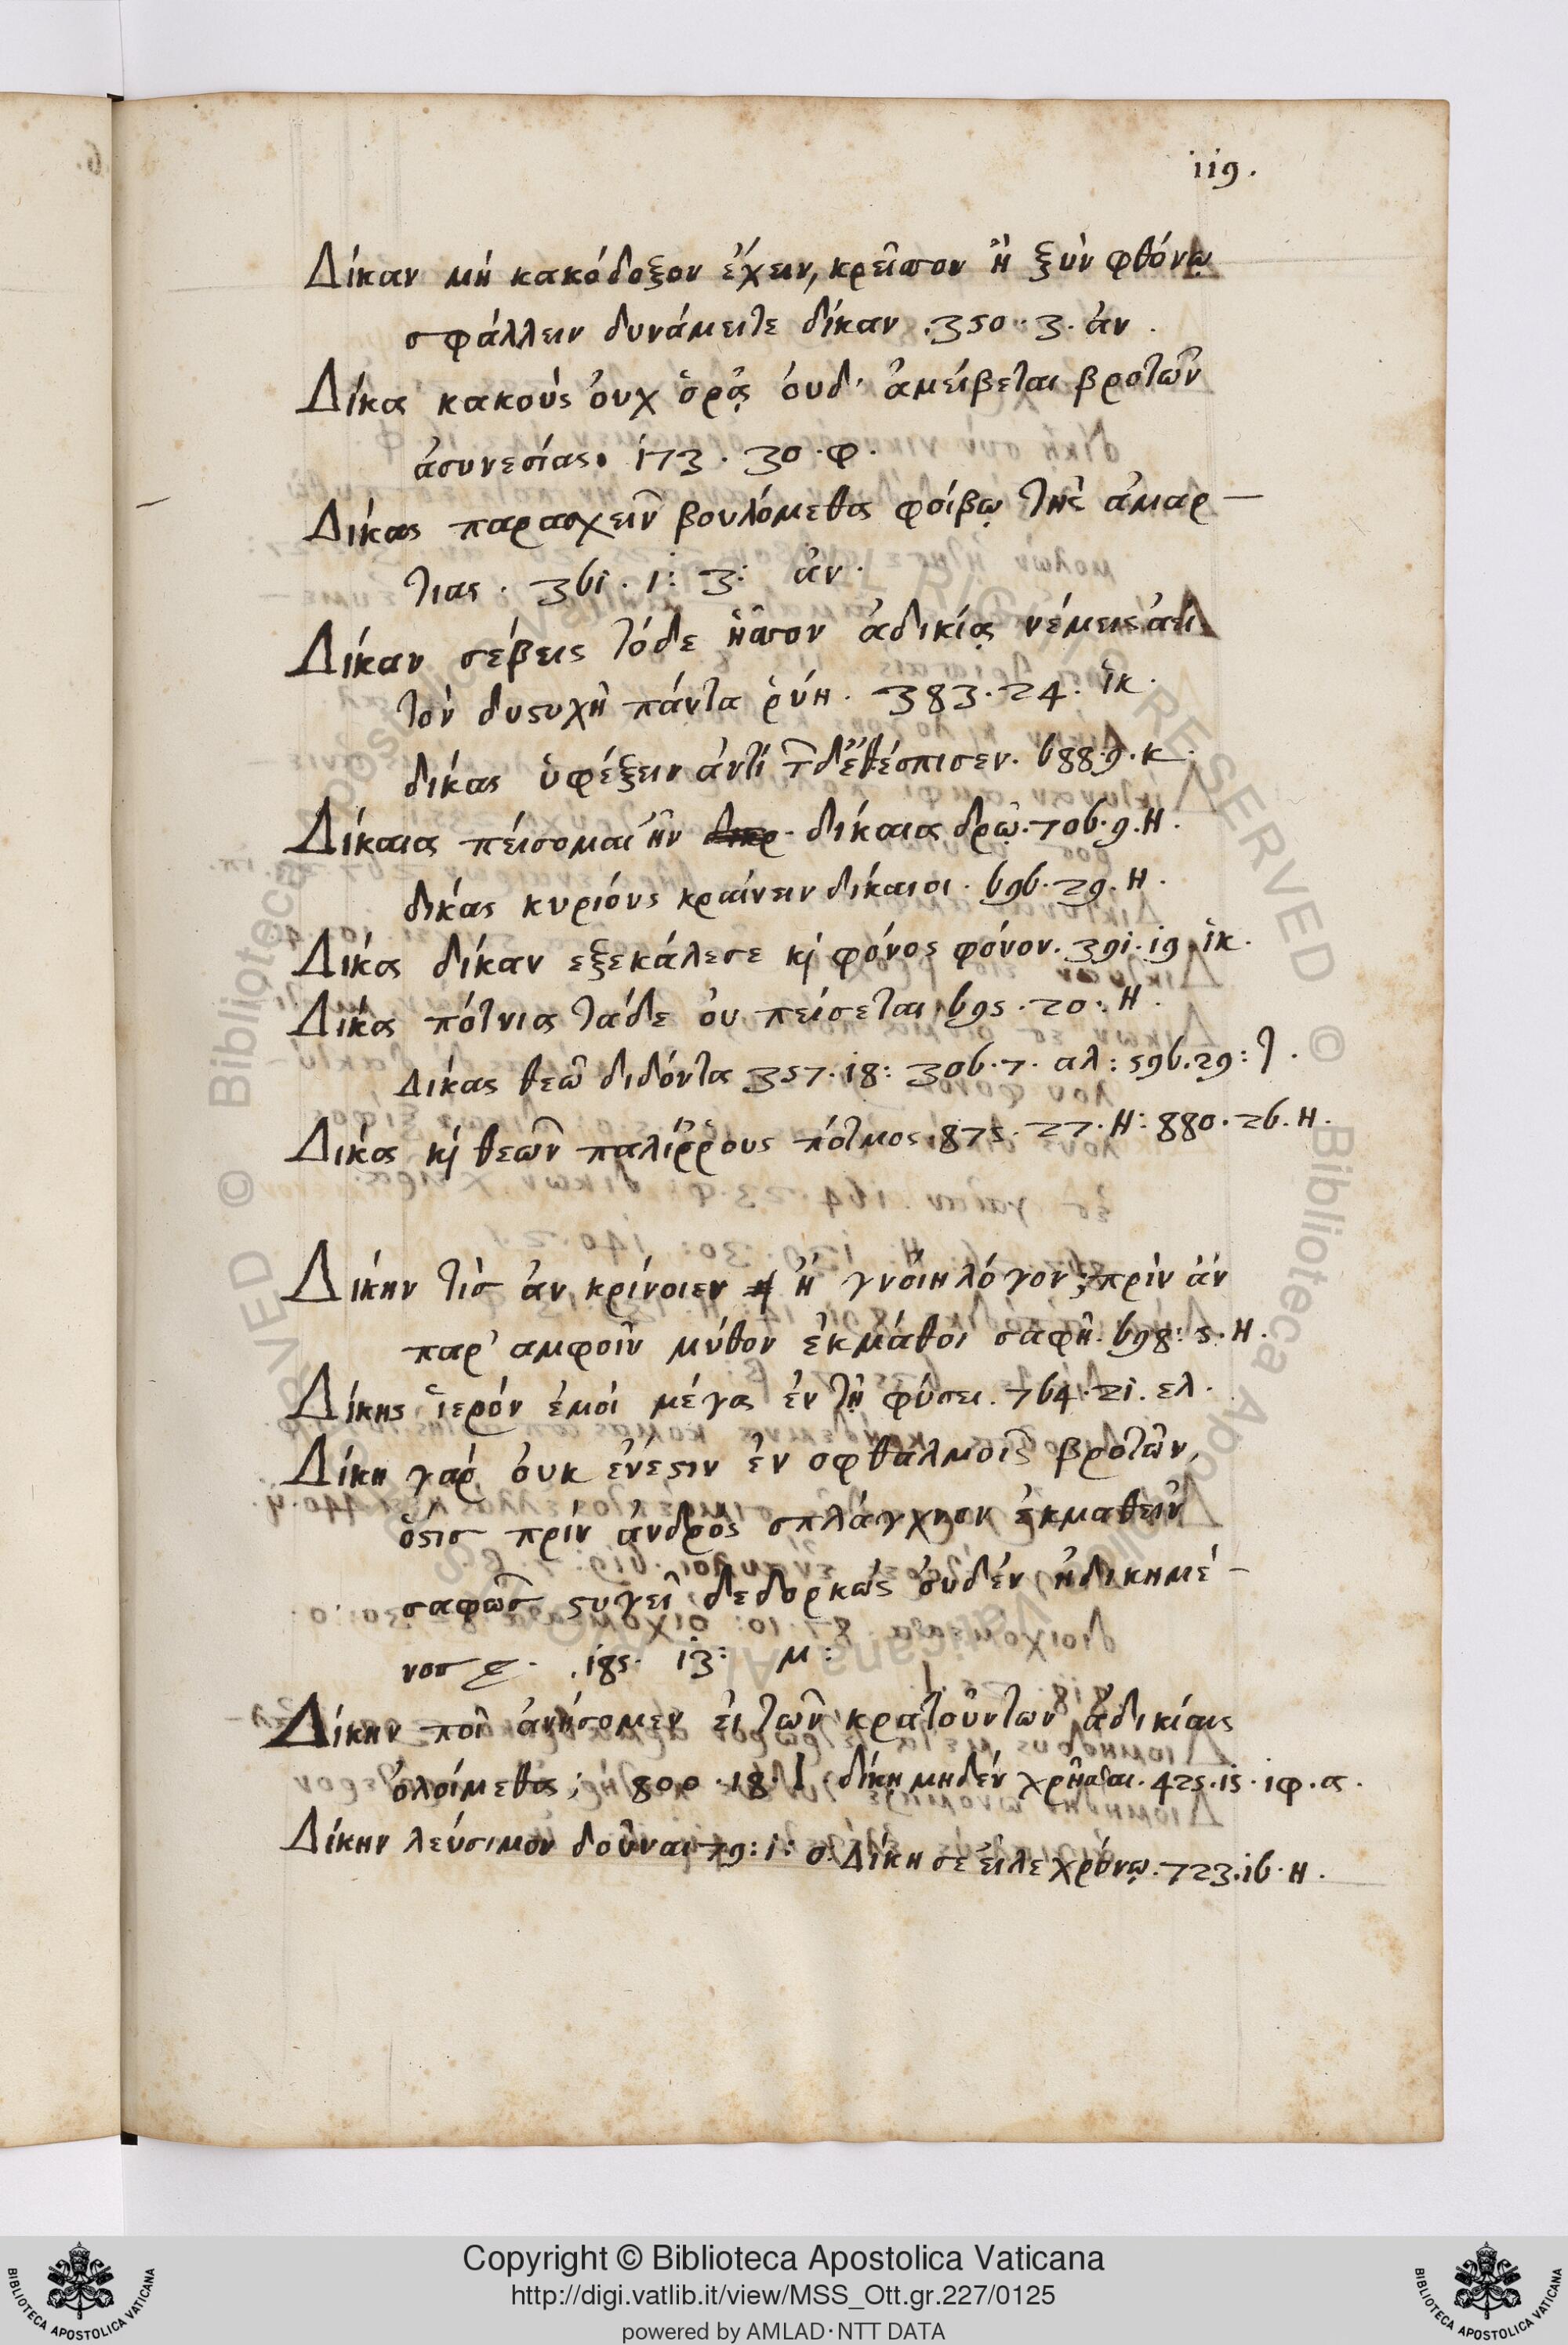 119.
Δίκαν μή κακόδοξον ἔχειν, κρεῖσσον ἢ ξὺν φθόνῳ
σφάλλειν δυνάμειτε δίκαν . 350 . 3 . ἀν .
Δίκα κακοὺς ὀυχ ὁρᾷ ὀυδ' ἀμείβεται βροτῶν
ἀσυνεσίας. 173 . 30 . φ .
Δίκας παρασχεῖν βουλόμεθα φοίβῳ τῆς ἁμαρ-
τιας . 361 . 1 : 3 : ἀν .
Δίκαν σέβεις τόδε ἧσσον ἀδικίᾳ νέμεις ἀεὶ
τὸν δυστυχῆ πάντα ῥύη . 383 . 24 . ἱκ .
δίκας ὑφέξειν ἀντί τ͂δ' ἐθέσπισεν . 688 . 9 . κ .
Δίκαια πείσομαι ἢν δίκαια δρῶ . 706 . 9 . Η .
δίκας κυριόυς κραίνειν δίκαιοι . 696 . 29 . Η .
Δίκα δίκαν εξεκάλεσε κὶ φόνος φόνον . 391 . 19 ἱκ .
Δίκα πότνια τάδε ὀυ πείσεται . 695 . 20 : Η .
Δίκας θεῶ διδόντα 357 . 18 : 306 . 7 . αλ : 596 . 29 : τ .
Δίκα κὶ θεῶν παλίῤῥους πότμος . 875 . 27 . Η : 880 . 26 . Η .
Δίκην τίσ ἀν κρίνοιεν ἢ γνοίη λόγον ; πρὶν ἀν
παρ' αμφοῖν μύθον ἐκμάθοι σαφῆ . 698 : 5 . Η .
Δίκης ἱερόν ἐμοί μέγα ἐν τῇ φύσει . 764 . 21 . ελ .
Δίκη γαρ ὀυκ ἐνέστιν ἐν οφθαλμοῖς βροτῶν,
ὅστισ πρίν ἀνδρὸς σπλάγχνον ἐκμαθεῖν
σαφῶσ στυγεῖ δεδορκώς ὀυδέν ἠδικημέ-
νοσ . 185 . 13 : μ :
Δίκην ποῖ ἀνήσομεν ἐι τῶν κρατοῦντων ἀδικίαις
ὀλοίμεθα ; 800 . 18 . τ . δίκῃ μηδέν χρῆσθαι . 425 . 15 . ιφ . α .
Δίκην λεύσιμον δοῦναι 79 : 1 : ο . Δίκη σε εἷλε χρόνῳ . 723 . 16 . Η .
Copyright © Biblioteca Apostolica Vaticana
http://digi.vatlib.it/view/MSS_Ott.gr.227/0125
powered by AMLAD·NTT DATA
BIBLIOTECA APOSTOLICA VATICANA
BIBLIOTECA APOSTOLICA VATICANA